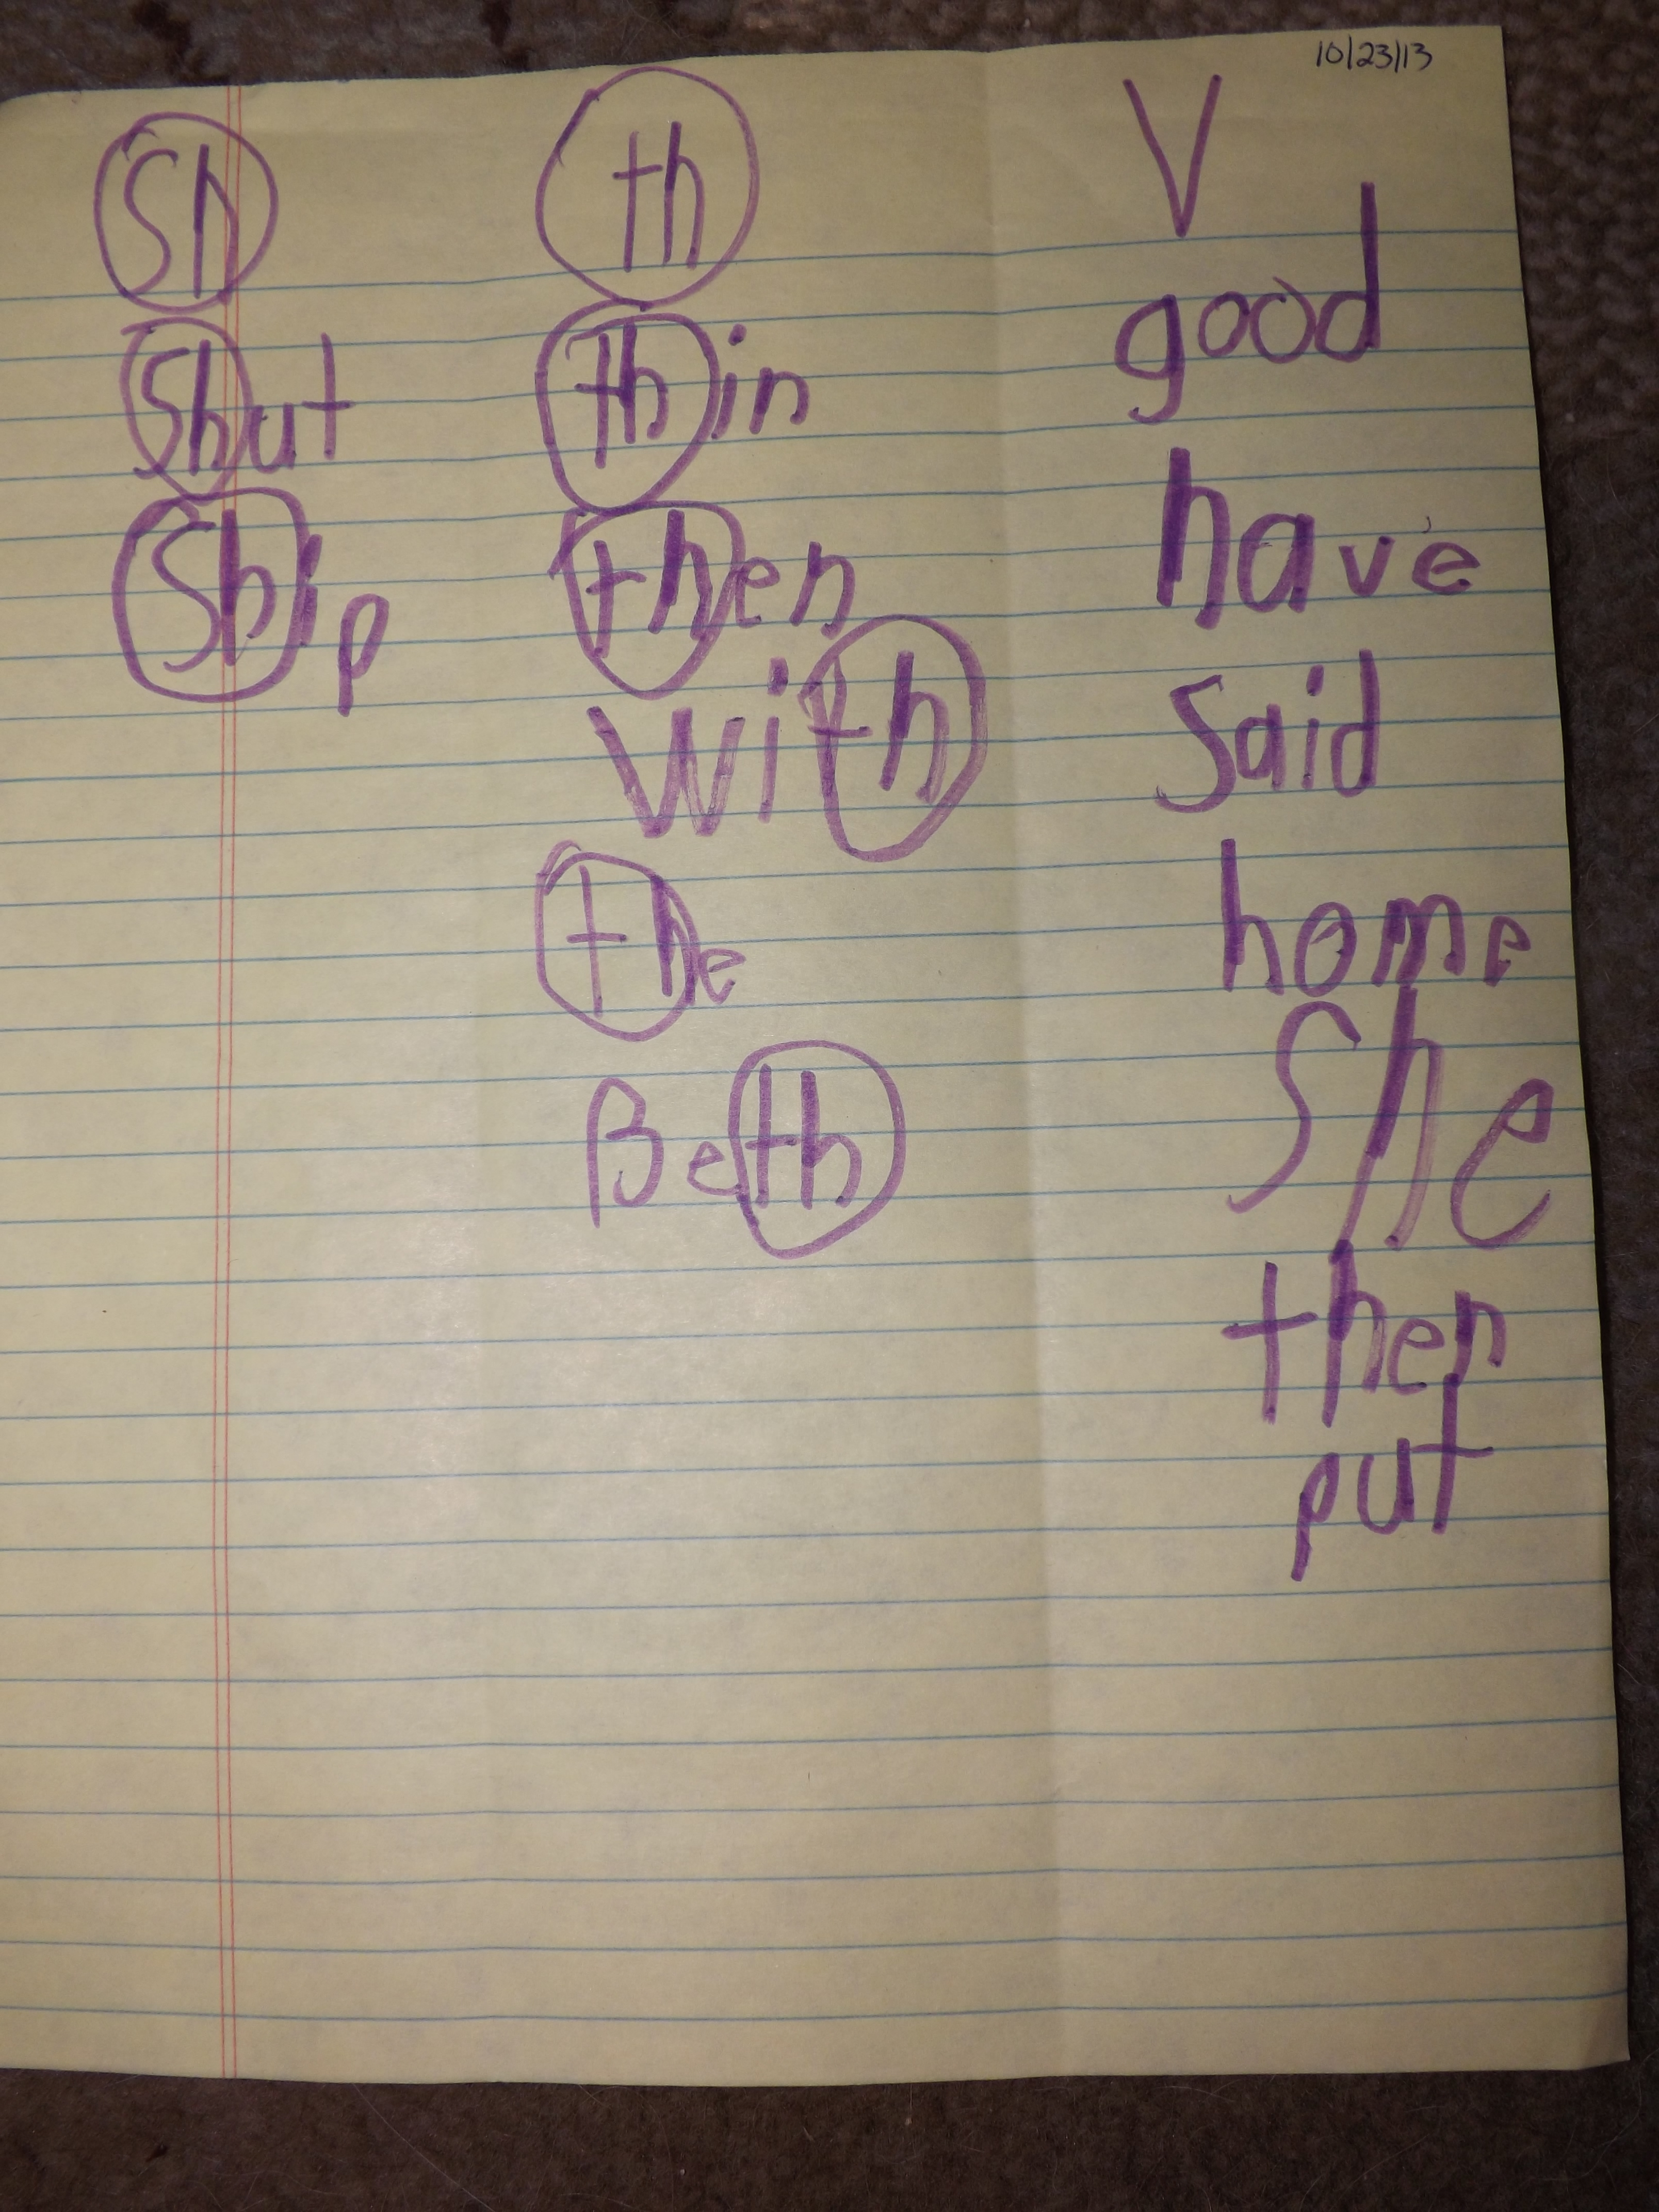 10/23/13
Sh
Shut
Ship
th
thin
then
with
the
Beth
V
good
have
said
home
She
then
put